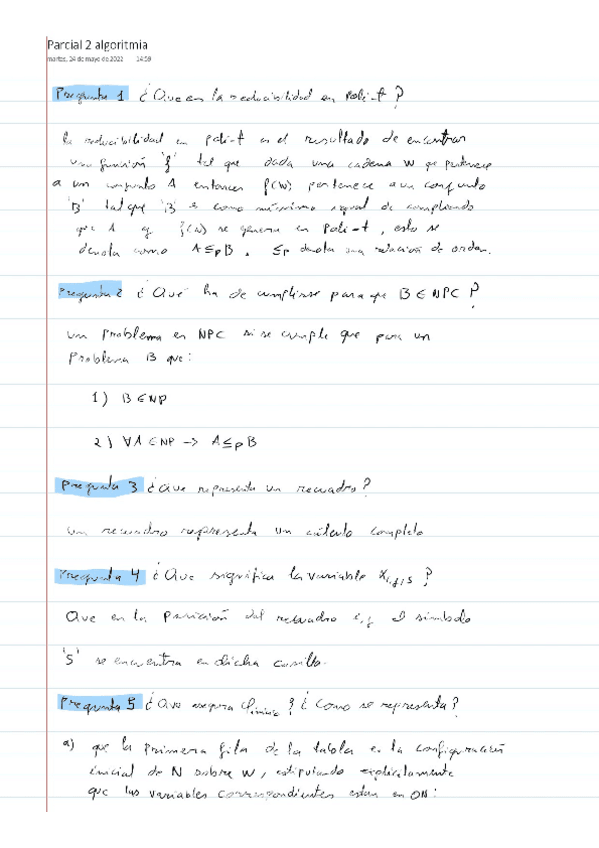 Parcial 2 algoritmia
martes, 24 de mayo de 2022 14:59
Pregunta 1 ¿Que es la reducibilidad en Poli-t?
la reducibilidad en poli-t es el resultado de encontrar
una función 'f' tal que dada una cadena W que pertenece
a un conjunto A entonces f(W) pertenece a un conjunto
'B' tal que 'B' es como mínimo igual de complicado
que A y f(W) se genera en Poli-t, esto se
denota como A≤pB, ≤p denota una relación de orden.
Pregunta 2 ¿Qué ha de cumplirse para que B ∈ NPC?
un problema en NPC si se cumple que para un
Problema B que:
1) B ∈ NP
2) ∀A ∈ NP -> A≤pB
Pregunta 3 ¿Que representa un recuadro?
un recuadro representa un cálculo completo
Pregunta 4 ¿Que significa la variable Xi,j,s?
Que en la posición del recuadro i,j el símbolo
'S' se encuentra en dicha casilla.
Pregunta 5 ¿Que asegura φinicio? ¿Como se representa?
a) que la primera fila de la tabla es la configuración
inicial de N sobre W, estipulando explícitamente
que las variables correspondientes estan en ON: